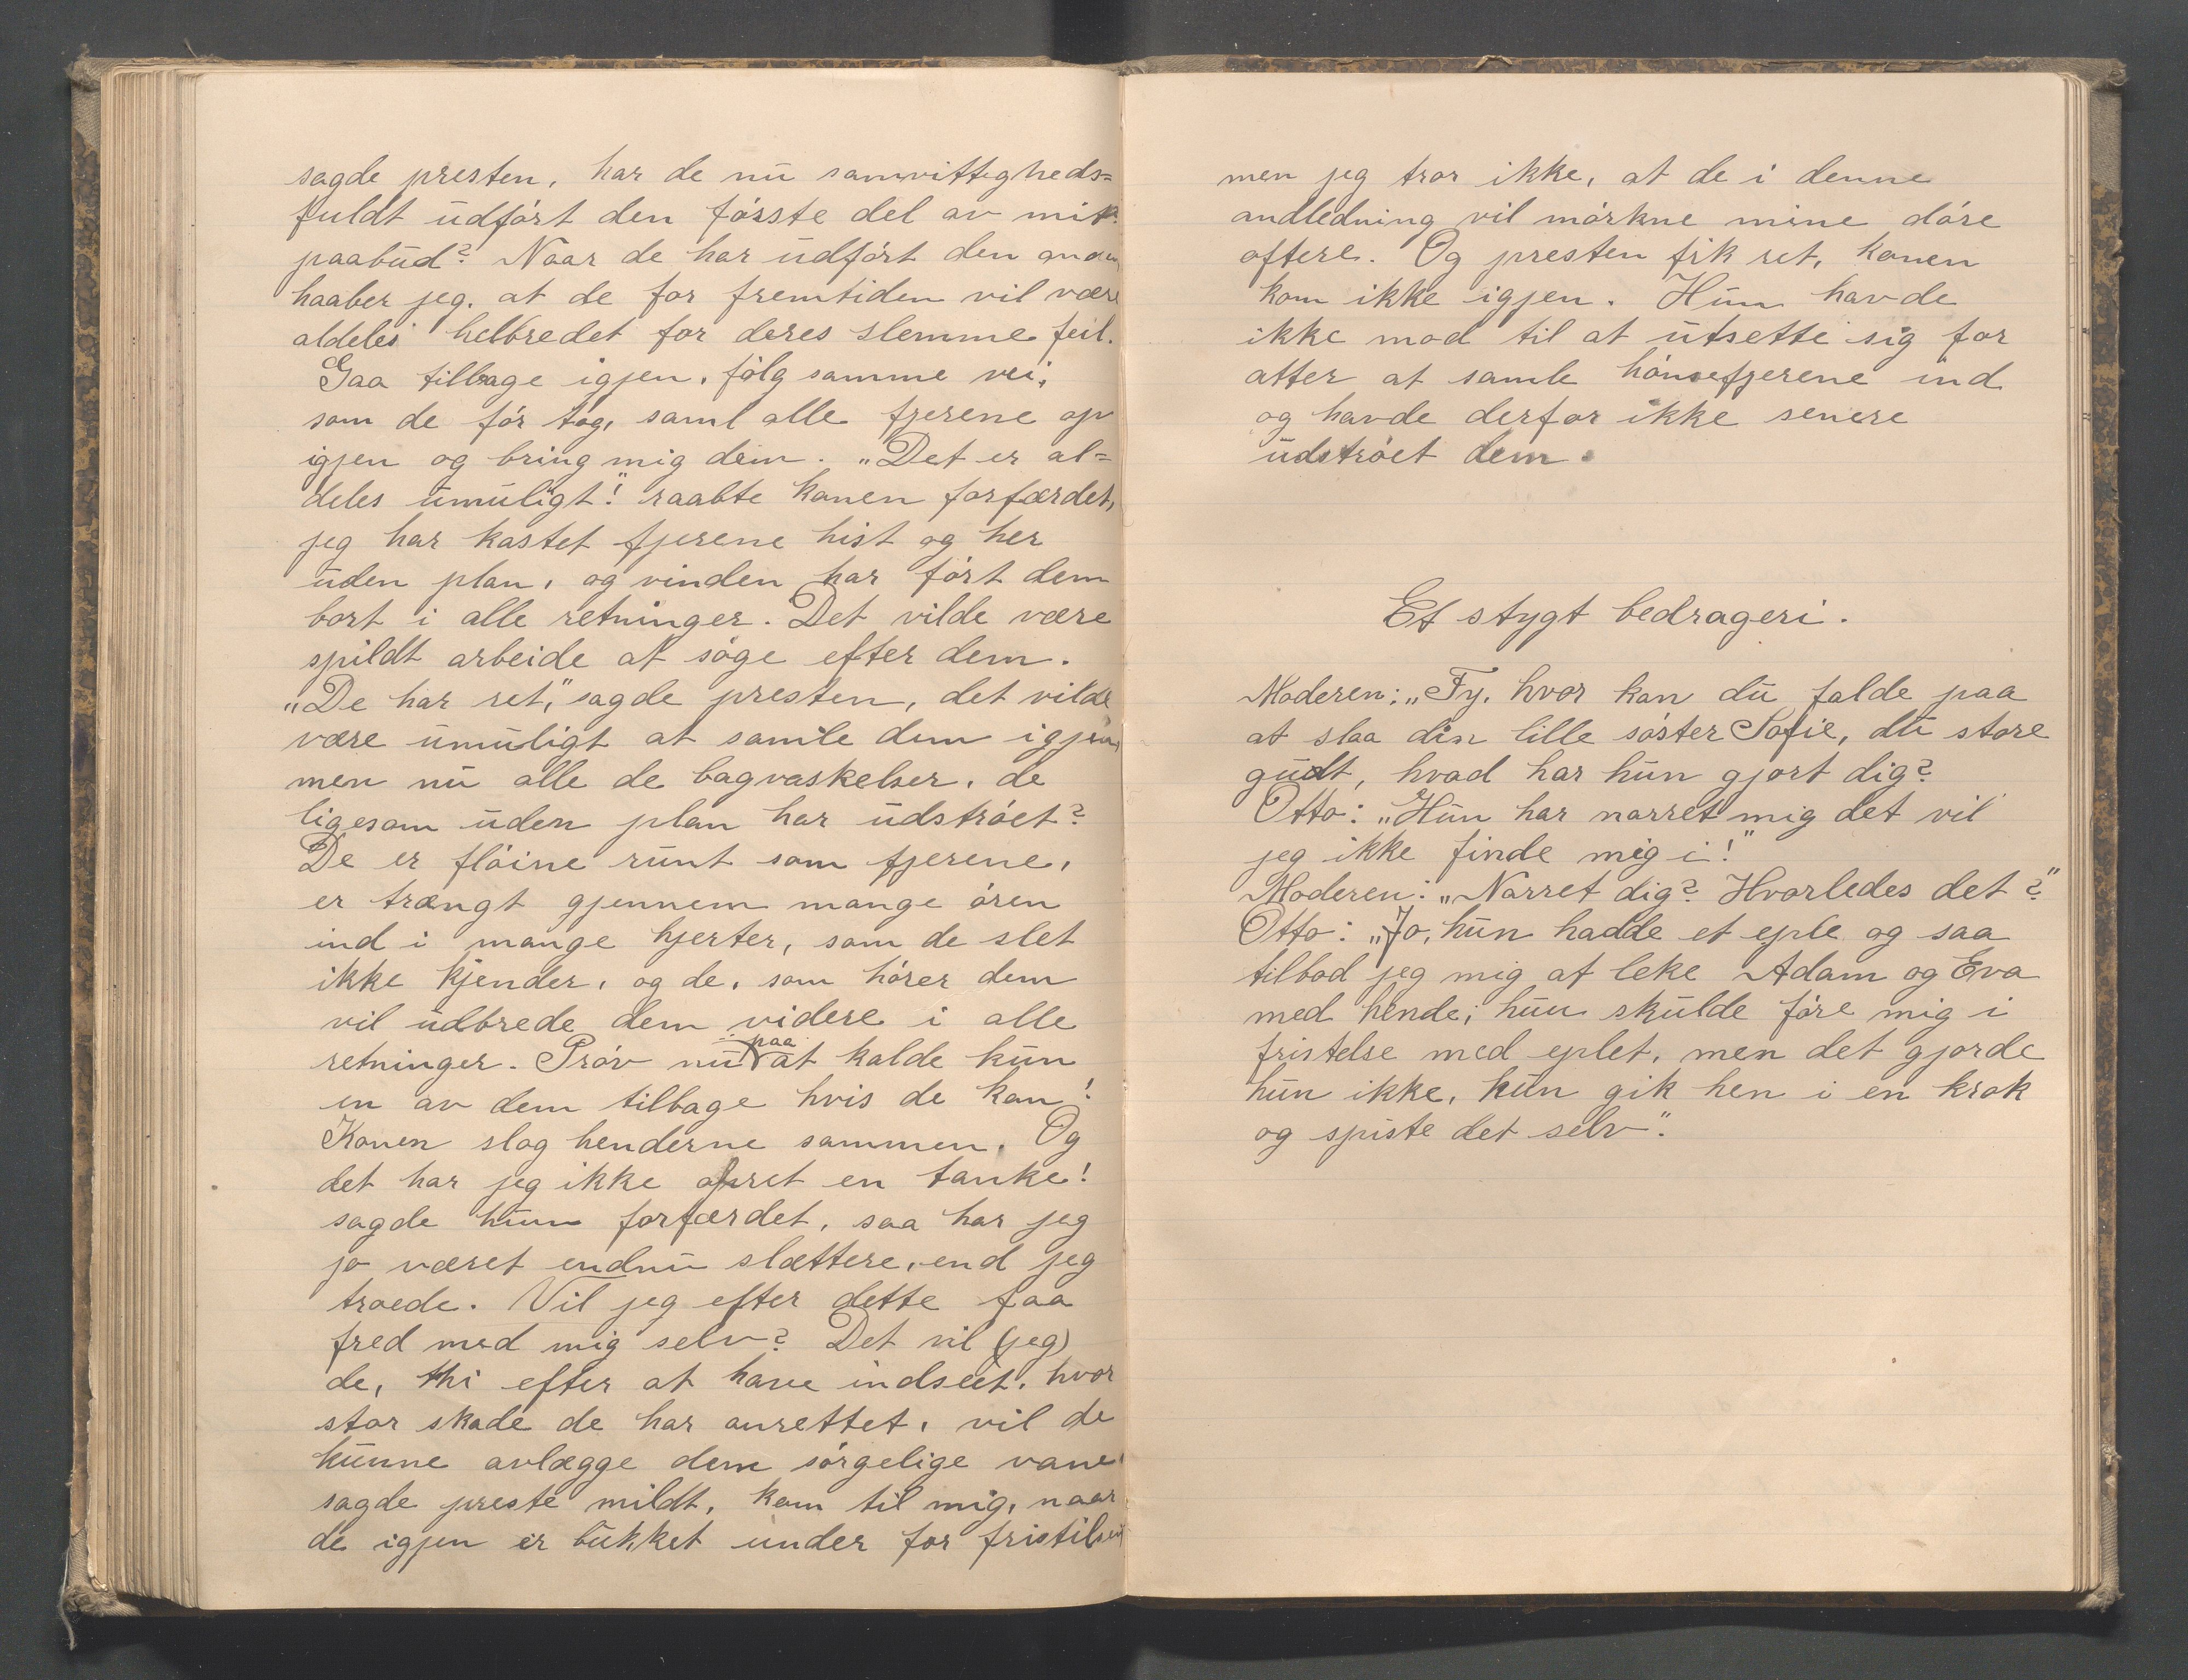 sagde presten, har de nu samvittigheds=
fuldt udført den første del av mit
paabud? Naar de har udført den anden
haaber jeg, at de for fremtiden vil være
aldeles helbredet for deres slemme feil.
Gaa tilbage igjen, følg samme vei,
som de før tog, saml alle fjerene op
igjen og bring mig dem. „Det er al=
deles umuligt!" raabte konen forfærdet,
jeg har kastet fjerene hist og her
uden plan, og vinden har ført dem
bort i alle retninger. Det vilde være
spildt arbeide at søge efter dem.
„De har ret," sagde presten, det vilde
være umuligt at samle dem igjen,
men nu alle de bagvaskelser, de
ligesom uden plan har udstrøet?
De er fløine runt som fjerene,
er trængt gjennem mange øren
ind i mange hjerter, som de slet
ikke kjender, og de, som hører dem
vil udbrede dem videre i alle
retninger. Prøv nu paa at kalde kun
en av dem tilbage hvis de kan!
Konen slog henderne sammen. Og
det har jeg ikke ofret en tanke!
sagde hun forfærdet, saa har jeg
jo været endnu slættere, end jeg
troede. Vil jeg efter dette faa
fred med mig selv? Det vil (jeg)
de, thi efter at have indseet, hvor
stor skade de har anrettet, vil de
kunne avlægge dem sørgelige vane,
sagde preste mildt, kom til mig, naar
de igjen er bukket under for fristilsen
men jeg tror ikke, at de i denne
andledning vil mørkne mine døre
oftere. Og presten fik ret, konen
kom ikke igjen. Hun havde
ikke mod til at utsette sig for
atter at samle hønsefjerene ind
og havde derfor ikke senere
udstrøet dem.
Et stygt bedrageri.
Moderen: „Fy, hvor kan du falde paa
at slaa din lille søster Sofie, du store
gudt, hvad har hun gjort dig?
Otto: „Hun har narret mig det vil
jeg ikke finde mig i!"
Moderen: „Narret dig? Hvorledes det?"
Otto: „Jo, hun hadde et eple og saa
tilbod jeg mig at leke Adam og Eva
med hende; hun skulde føre mig i
fristelse med eplet, men det gjorde
hun ikke, hun gik hen i en krok
og spiste det selv".